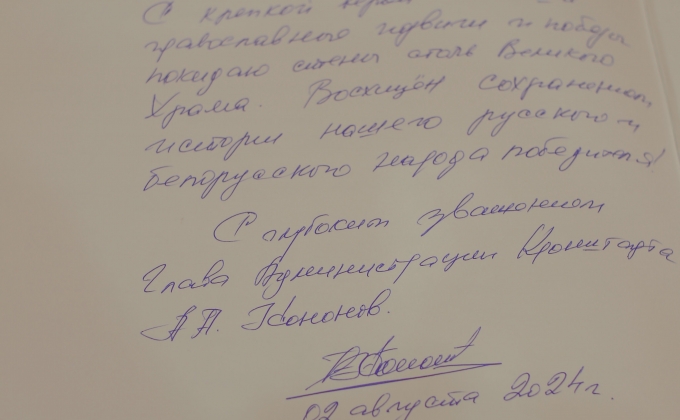 С крепкой верой
православные подвиги и победы
покидаю стены столь Великого
Храма. Восхищён сохранением
истории нашего русского и
белорусского народа победителя!
С глубоким уважением
Глава Администрации Кронштадта
А.А. Кононов.
02 августа 2024г.